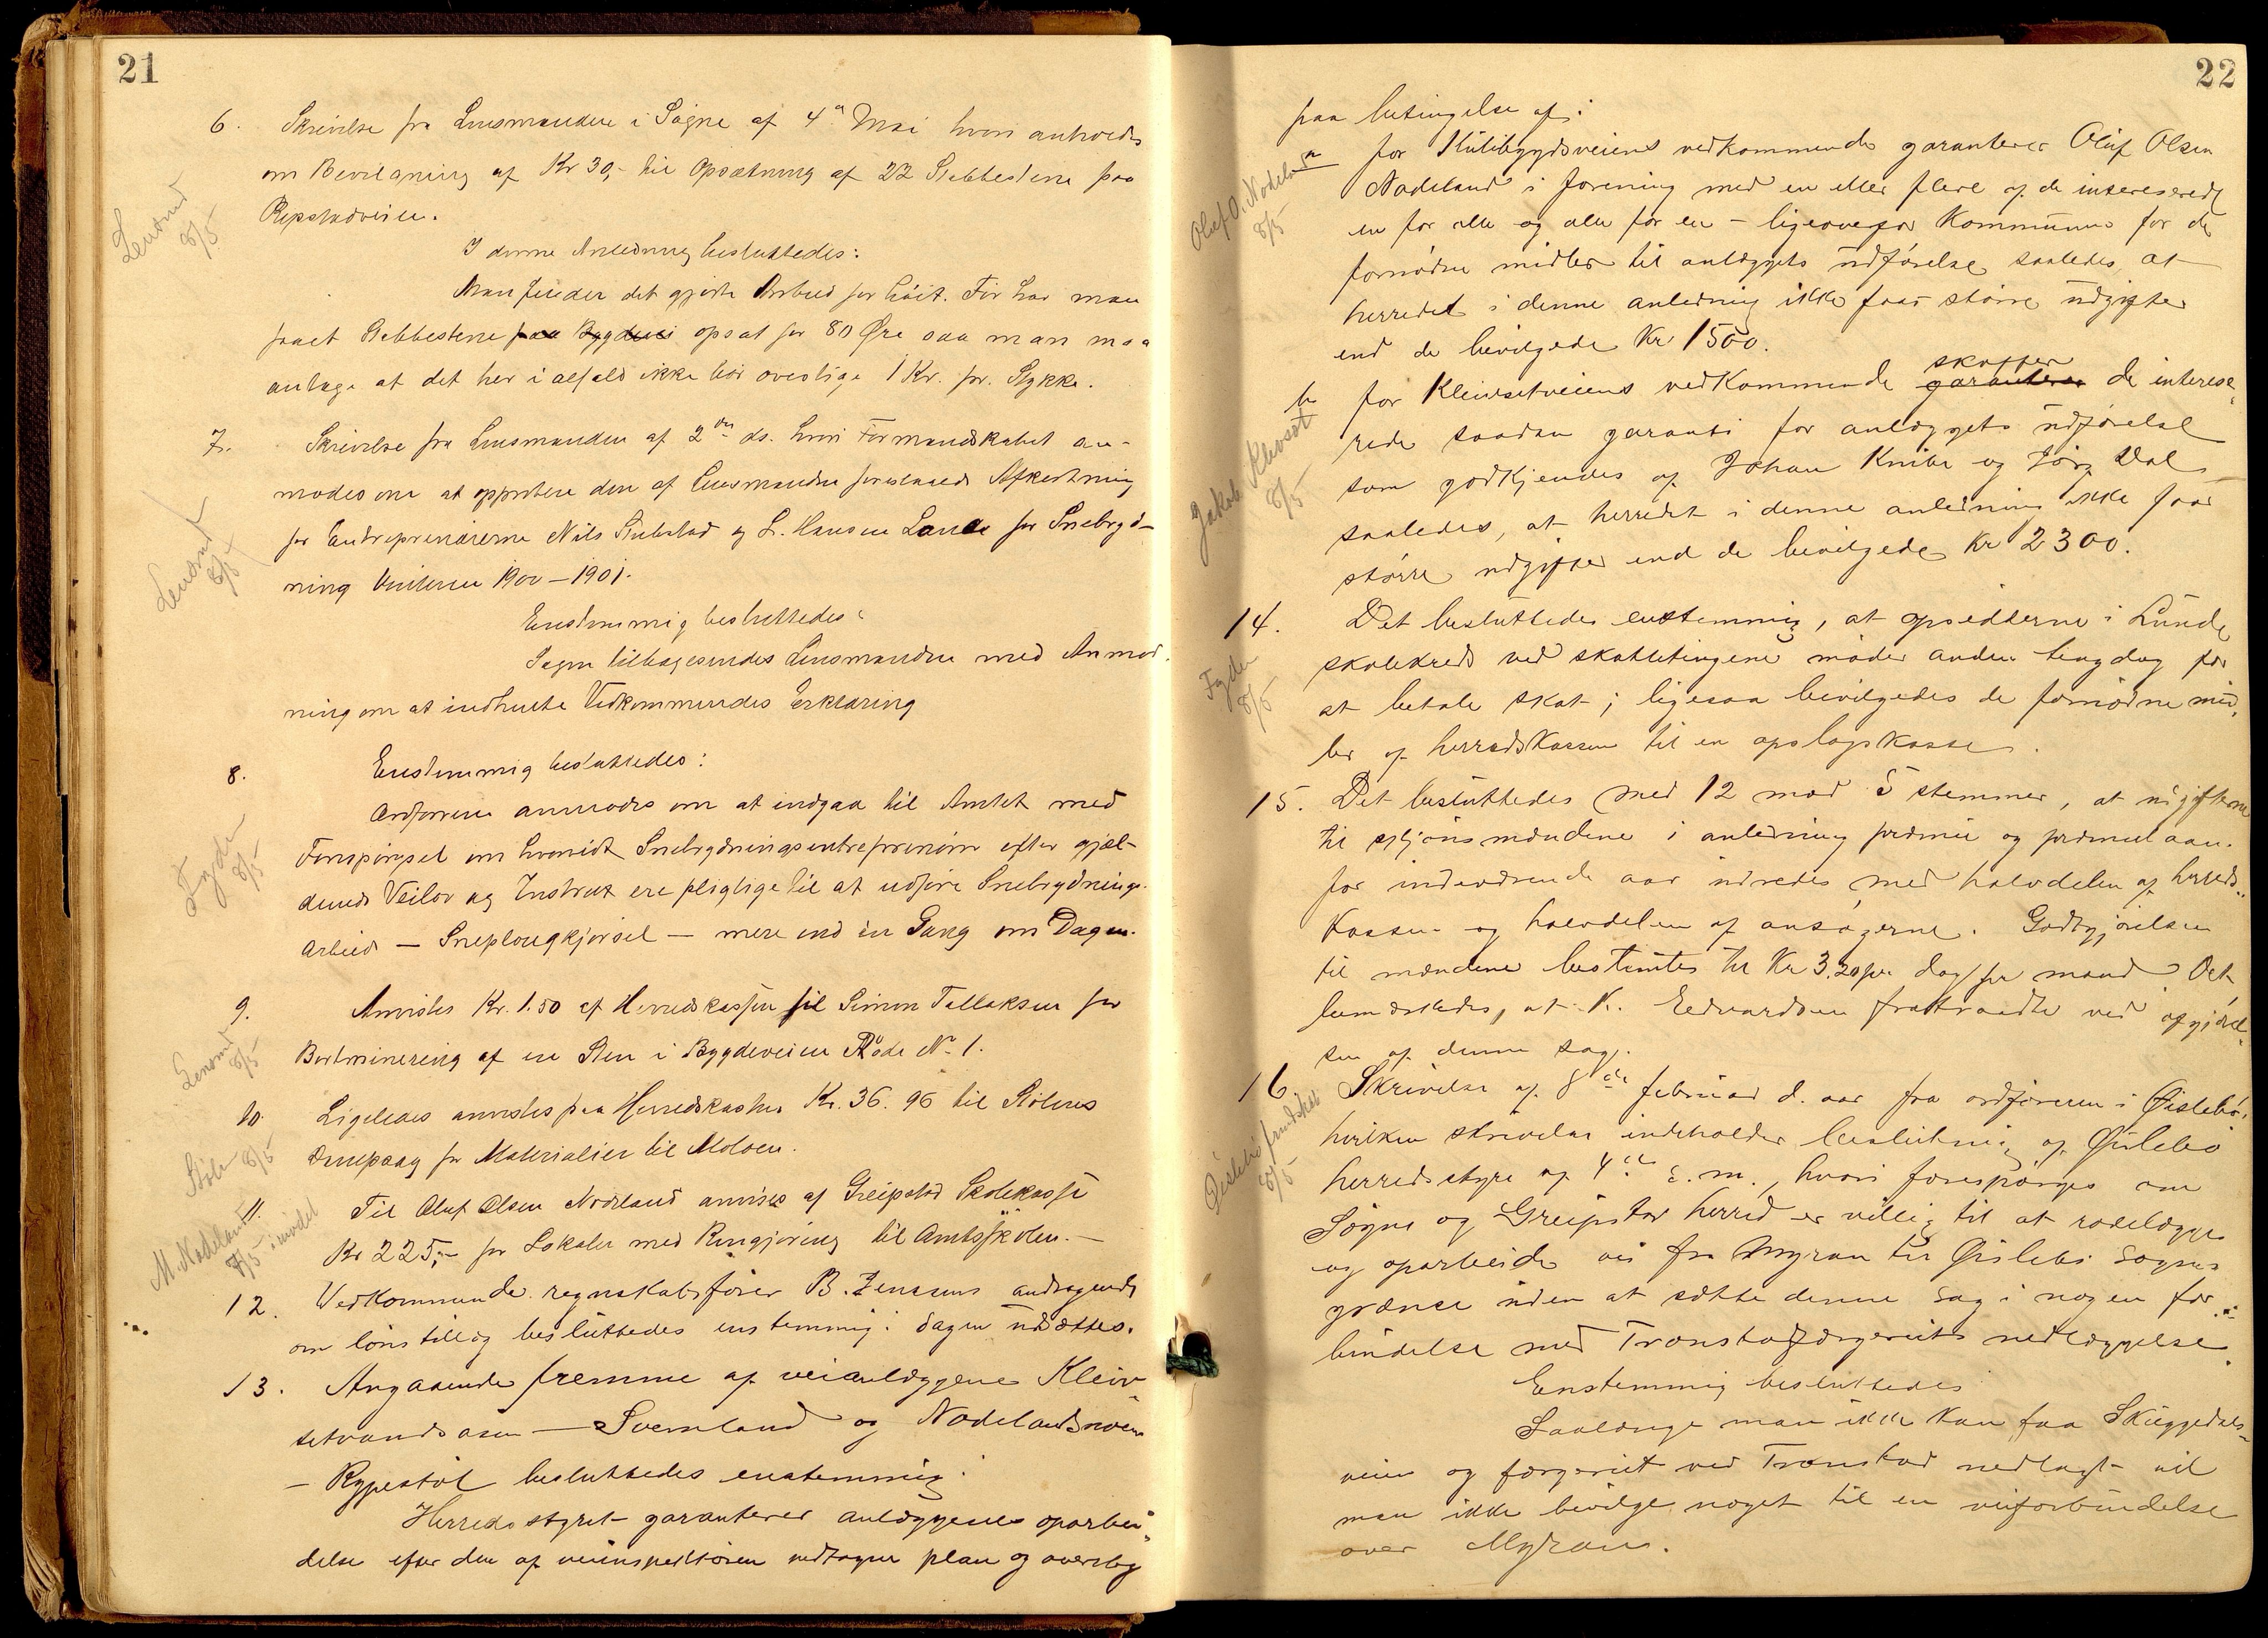 21
6. Skrivelse fra Lensmanden i Søgne af 4de Mai hvori anholdes
om Bevilgning af Kr 30,- til Opsætning af 22 Stabbestene paa
Repstadveien.
Lensmd
8/5
I denne Anledning besluttedes:
Man finder det gjorte Anbud for høit. Før har man
faaet Stabbestene paa Bygdevei opsat for 80 Øre saa man maa
antage at det her i alfald ikke bør overstige 1 Kr. pr. Stykke.
7. Skrivelse fra Lensmanden af 2den ds. hvori Formandskabet an-
modes om at approbere den af Lensmanden foreslaaede Afkortning
for Entreprenørerne Nils Stubstad og L. Hansen Lande for Snebryd-
ning Vinteren 1900-1901.
Lensmd
8/5
Enstemmig besluttedes:
Sagen tilbagesendes Lensmanden med Anmod-
ning om at indhente Vedkommendes Erklæring
8. Enstemmig besluttedes:
Ordføreren anmodes om at indgaa til Amtet med
Forespørgsel om hvorvidt Snebrydningsentreprenører efter gjæl-
dende Veilov og Instrux ere pligtige til at udføre Snebrydnings-
arbeid — Sneplougkjørsel — mere end en Gang om Dagen.
Fogden
8/5
9. Anvistes Kr. 1.50 af Herredskassen til Simon Tallaksen for
Bortminering af en Sten i Bygdeveien Rode No 1.
Lensmd
8/5
10. Ligeledes anvistes paa Herredskassen Kr. 36.96 til Stølens
Dampsag for Materialier til Moloen.
Støln 8/5
11. Til Oluf Olsen Nodeland anvises af Greipstad Skolekasse
Kr 225,- for Lokaler med Rengjøring til Amtsskolen.-
M. Nodeland
7/5 imødet
12. Vedkommende regnskabsfører B. Jenssens andragende
om lønstillæg besluttedes enstemmig: Sagen udsættes.
13. Angaaende fremme af veianlæggene Kleiv-
setvandsaasen — Svemland og Nodelandsveien
- Rypestøl besluttedes enstemmig:
Herredsstyret garanterer anlæggenes oparbei-
delse efter den af veiinspektøren vedtagne plan og overslag
22
paa betingelse af:
a for Stulibygdveiens vedkommende garanterer Oluf Olsen
Nodeland i forening med en eller flere af de interesserede
en for alle og alle for en - ligeoverfor Kommunen for de
fornødne midler til anlæggets udførelse saaledes, at
herredet i denne anledning ikke faar større udgifter
end de bevilgede Kr 1500.
Oluf O. Nodeland
8/5
b for Kleivsetveiens vedkommende garanterer skaffer de interese-
rede saadan garanti for anlæggets udførelse
som godkjendes af Johan Knibe og Jørg Dal
saaledes, at herredet i denne anledning ikke faar
større udgifter end de bevilgede Kr 2300.
Jakob Klevset
8/5
14. Det besluttedes enstemmig, at opsidderne i Lunde
skolekreds ved skattetingene møder anden tingdag for
at betale skat; ligesaa bevilgedes de fornødne mid-
ler af herredskassen til en opslagskasse.
Fogden
8/5
15. Det besluttedes med 12 mod 5 stemmer, at udgifterne
til skjønsmændene i anledning
for indeværende aar udredes med halvdelen af herreds-
kassen og halvdelen af ansøgerne. Godtgjørelsen
til mændene bestemtes til Kr 3.20 pr. dag pr mand. Det
bemærkedes, at K. Eedvardsen fratraadte ved afgjørel-
sen af denne sag.
16 Skrivelse af 8de februar d. aar fra ordføreren i Øislebø,
hvilken skrivelse indeholder beslutning af Øislebø
herredsstyre af 4de s.m., hvori forespørges om
Søgne og Greipstad herred er villig til at rodelægge
og oparbeide vei fra Myran til Øislebø sogne-
grænse uden at sætte denne sag i nogen for-
bindelse med Tronstadfærgeriets nedlæggelse.
Øislebø frmdskab
8/5
Enstemmig besluttedes
Saalænge man ikke kan faa Skuggedals-
veien og færgeriet ved Tronstad nedlagt vil
man ikke bevilge noget til en veiforbindelse
over Myran.